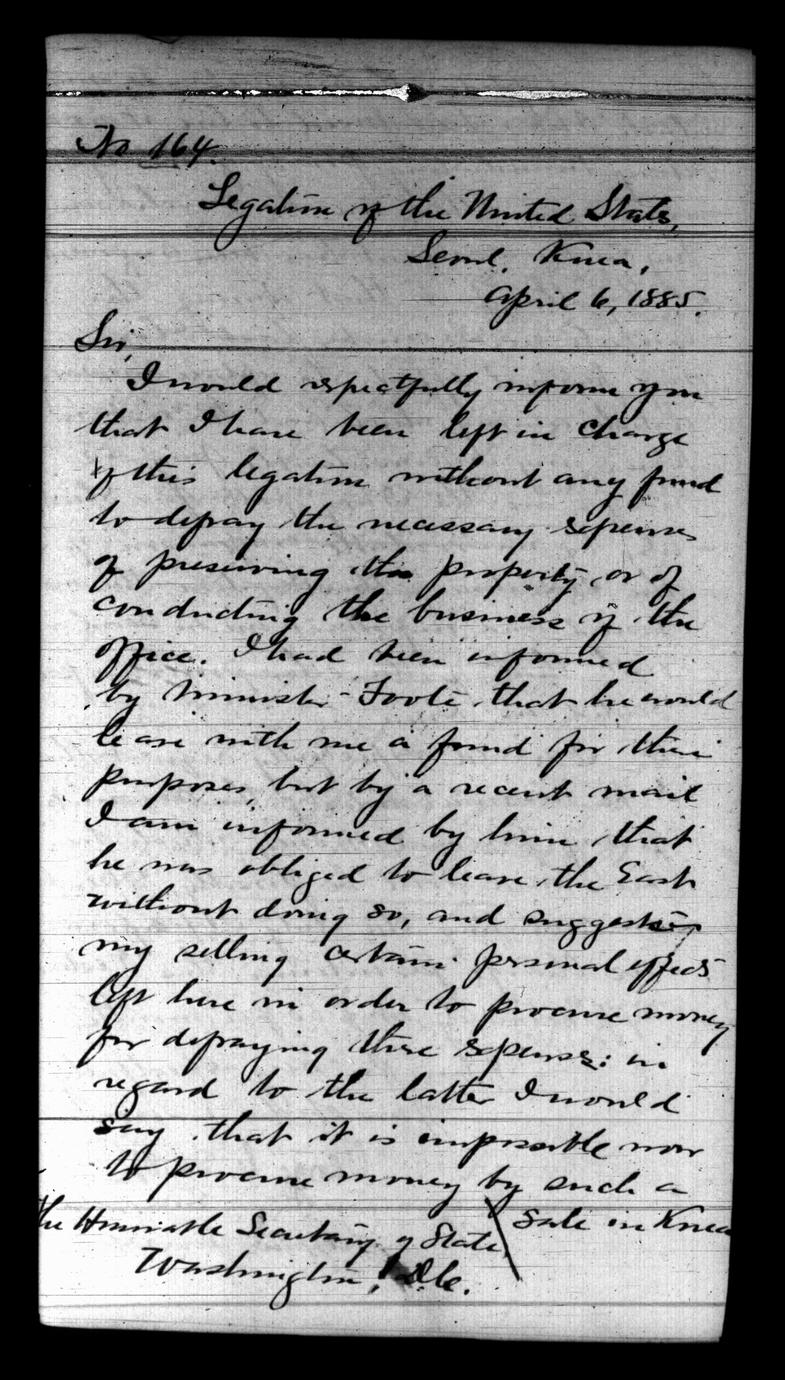 No 164.
Legation of the United States,
Seoul, Korea,
April 6, 1885.
Sir,
I would respectfully inform you
that I have been left in charge
of this legation without any fund
to defray the necessary expenses
of preserving the property or of
conducting the business of the
office. I had been informed
by Minister Foote that he would
leave with me a fund for these
purposes, but by a recent mail
I am informed by him that
he was obliged to leave the East
without doing so, and suggests
my selling certain personal effects
left here in order to procure money
for defraying these expenses: in
regard to the latter I would
say that it is impossible now
to procure money by such a
sale in Korea
The Honorable Secretary of State,
Washington, D.C.